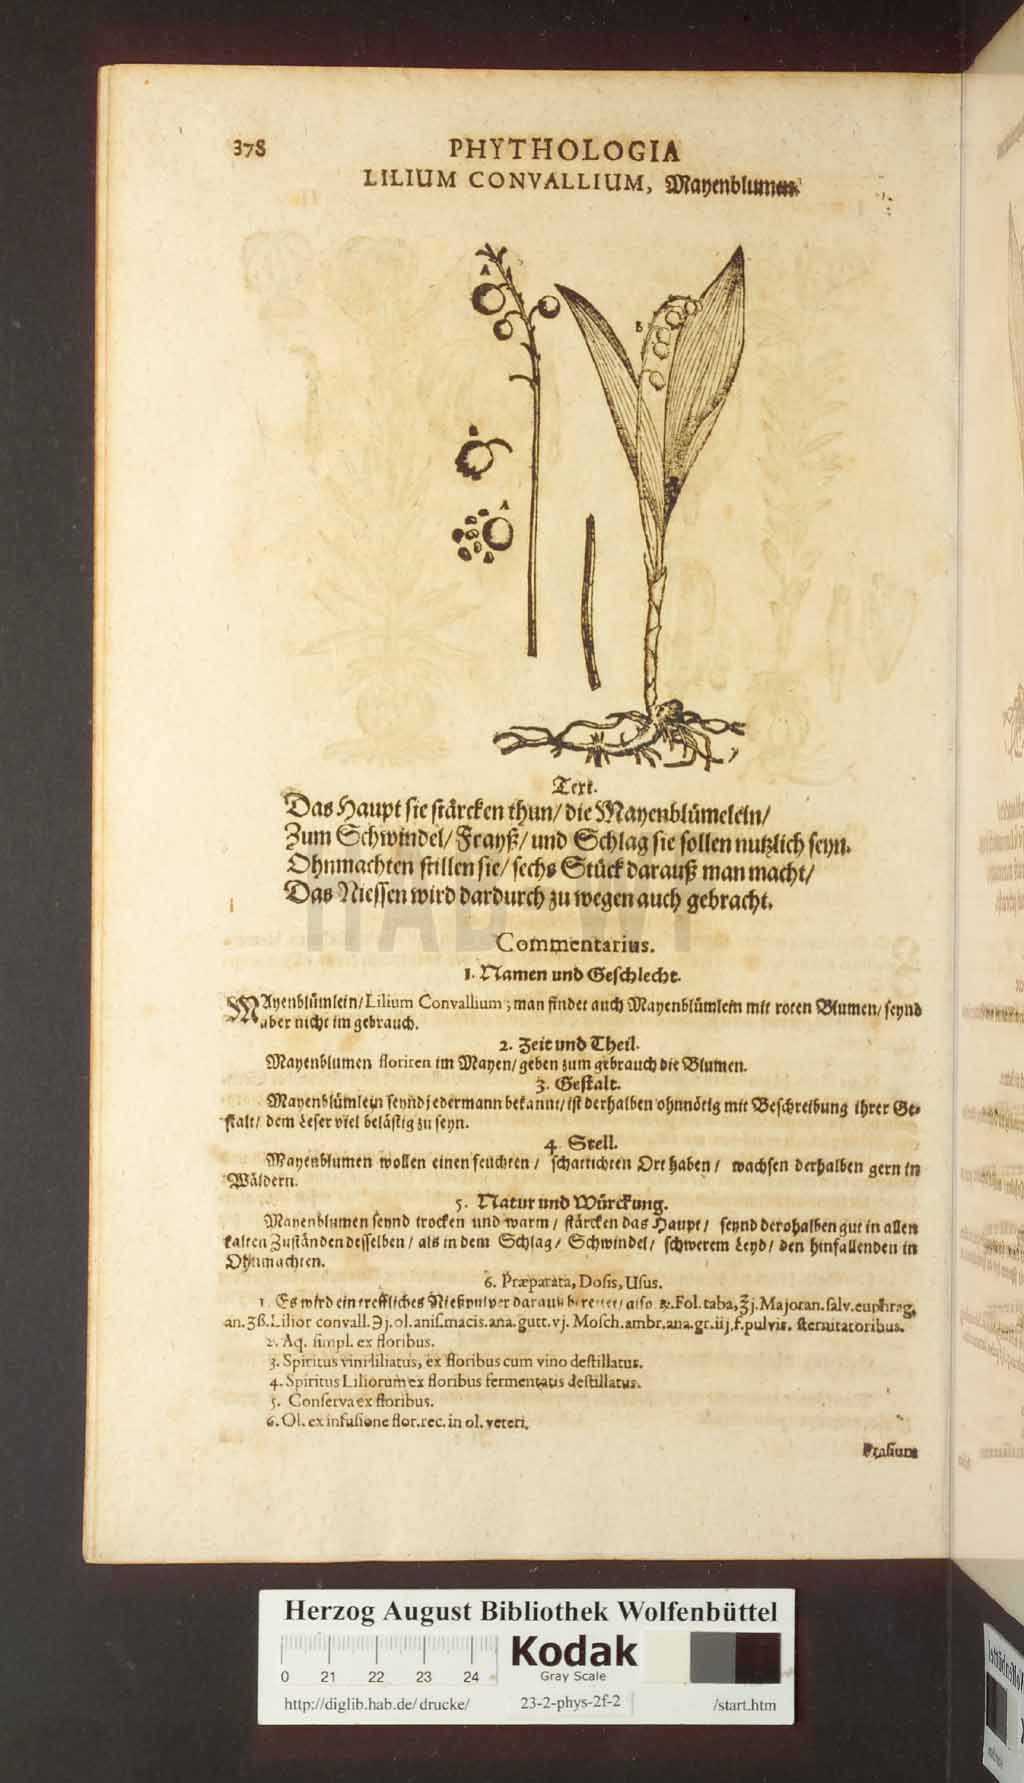 378
PHYTHOLOGIA
LILIUM CONVALLIUM, Mayenblumen.
A
B
A
Text.
Das Haupt sie stärcken thun/ die Mayenblümelein/
Zum Schwindel/ Frayß/ und Schlag sie sollen nutzlich seyn.
Ohnmachten stillen sie/ sechs Stück darauß man macht/
Das Niessen wird dardurch zu wegen auch gebracht.
HAB WF
Commentarius.
1. Namen und Geschlecht.
MAyenblümlein/ Lilium Convallium; man findet auch Mayenblümlein mit roten Blumen/ seynd
aber nicht im gebrauch.
2. Zeit und Theil.
Mayenblumen floriren im Mayen/ geben zum gebrauch die Blumen.
3. Gestalt.
Mayenblümlein seynd jedermann bekannt/ ist derhalben ohnnötig mit Beschreibung ihrer Ge-
stalt/ dem Leser viel belästig zu seyn.
4. Stell.
Mayenblumen wollen einen feuchten/ schattichten Ort haben/ wachsen derhalben gern in
Wäldern.
5. Natur und Würckung.
Mayenblumen seynd trocken und warm/ stärcken das Haupt/ seynd derohalben gut in allen
kalten Zuständen desselben/ als in dem Schlag/ Schwindel/ schwerem Leyd/ den hinfallenden in
Ohnmachten.
6. Præparata, Dosis, Usus.
1. Es wird ein treffliches Nießpulver darauß bereitet/ also ℞. Fol. taba, ʒj. Majoran. salv. euphrag.
an. ʒß. Lilior convall. ℈j. ol. anis. macis. ana. gutt. vj. Mosch. ambr. ana. gr. iij. f. pulvis. sternutatoribus.
2. Aq. simpl. ex floribus.
3. Spiritus vini liliatus, ex floribus cum vino destillatus.
4. Spiritus Liliorum ex floribus fermentatis destillatus.
5. Conserva ex floribus.
6. Ol. ex infusione flor. rec. in ol. veteri.
Prasium
Herzog August Bibliothek Wolfenbüttel
0 21 22 23 24
Kodak
Gray Scale
http://diglib.hab.de/drucke/ 23-2-phys-2f-2 /start.htm